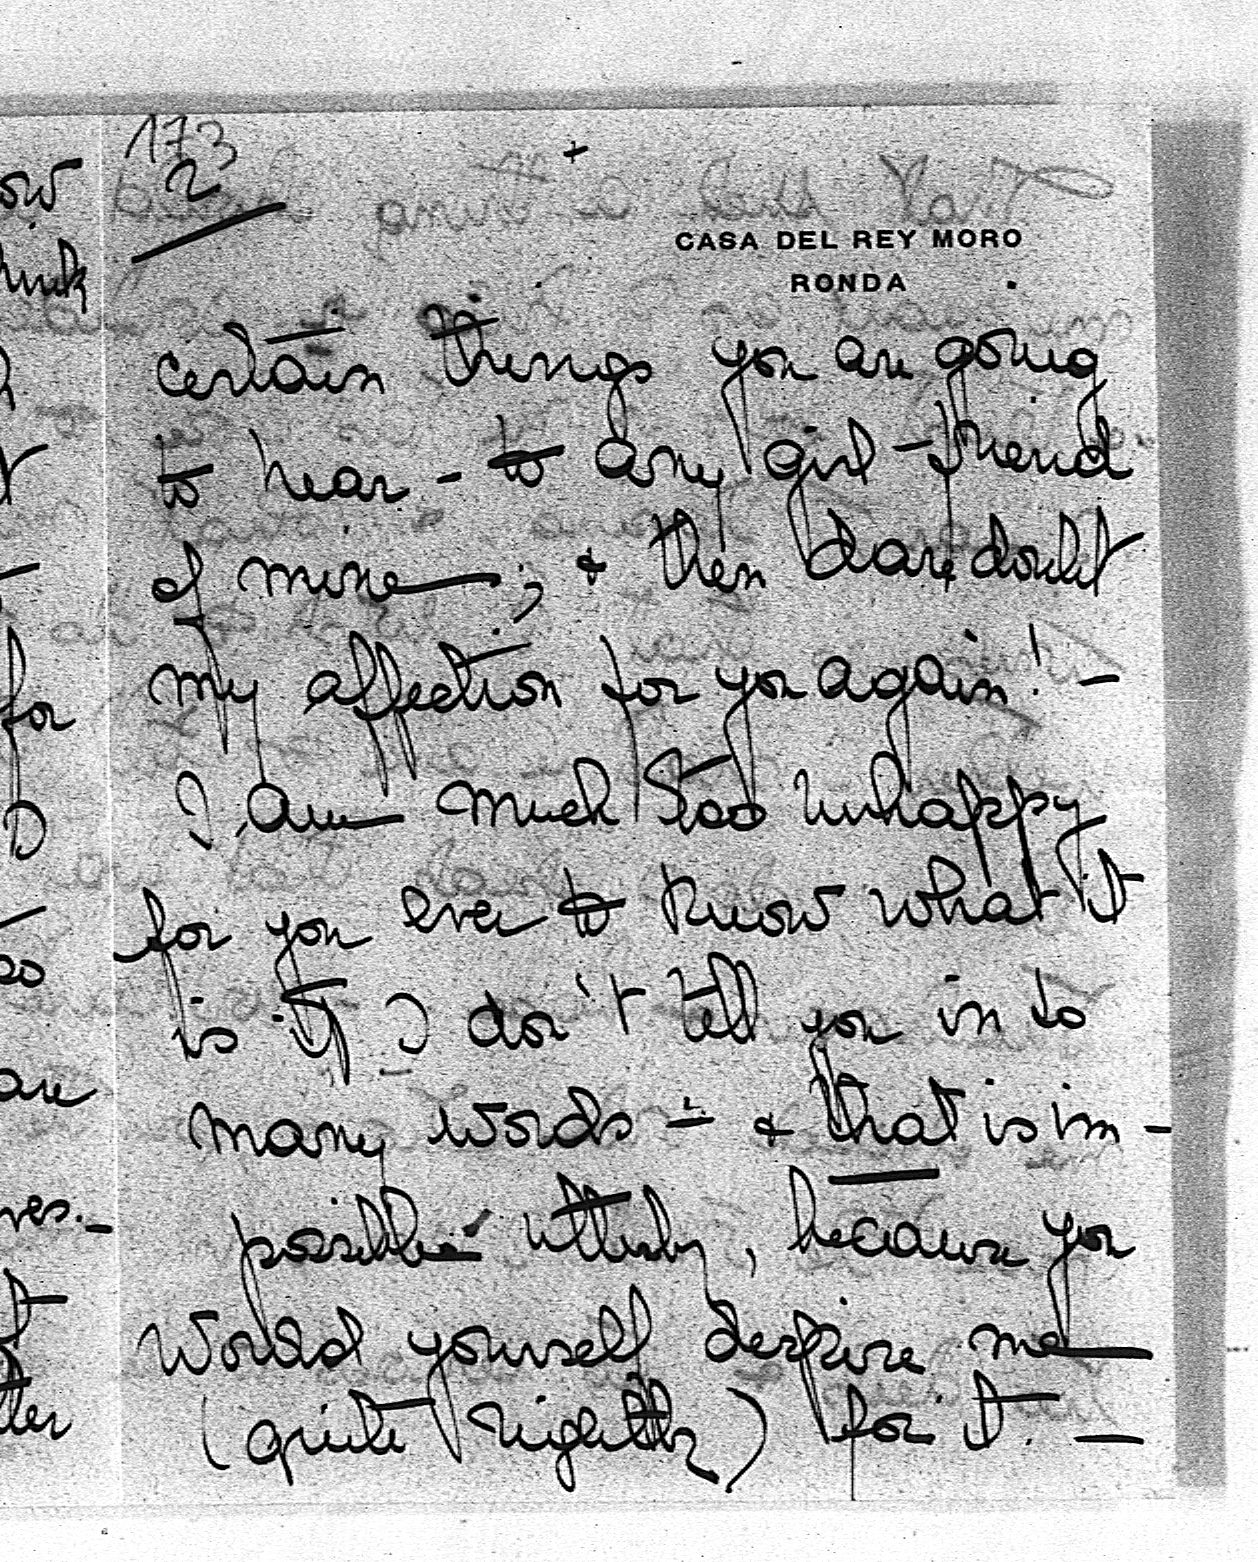 173
2
CASA DEL REY MORO
RONDA
certain things you are going
to hear - to any girl-friend
of mine; & then dare doubt
my affection for you again! -
I am much too unhappy
for you ever to know what it
is if I don't tell you in so
many words - & that is im-
possible utterly, because you
would yourself despise me
(quite rightly) for it. -
ow
hink
for
oo
are
res. -
tter